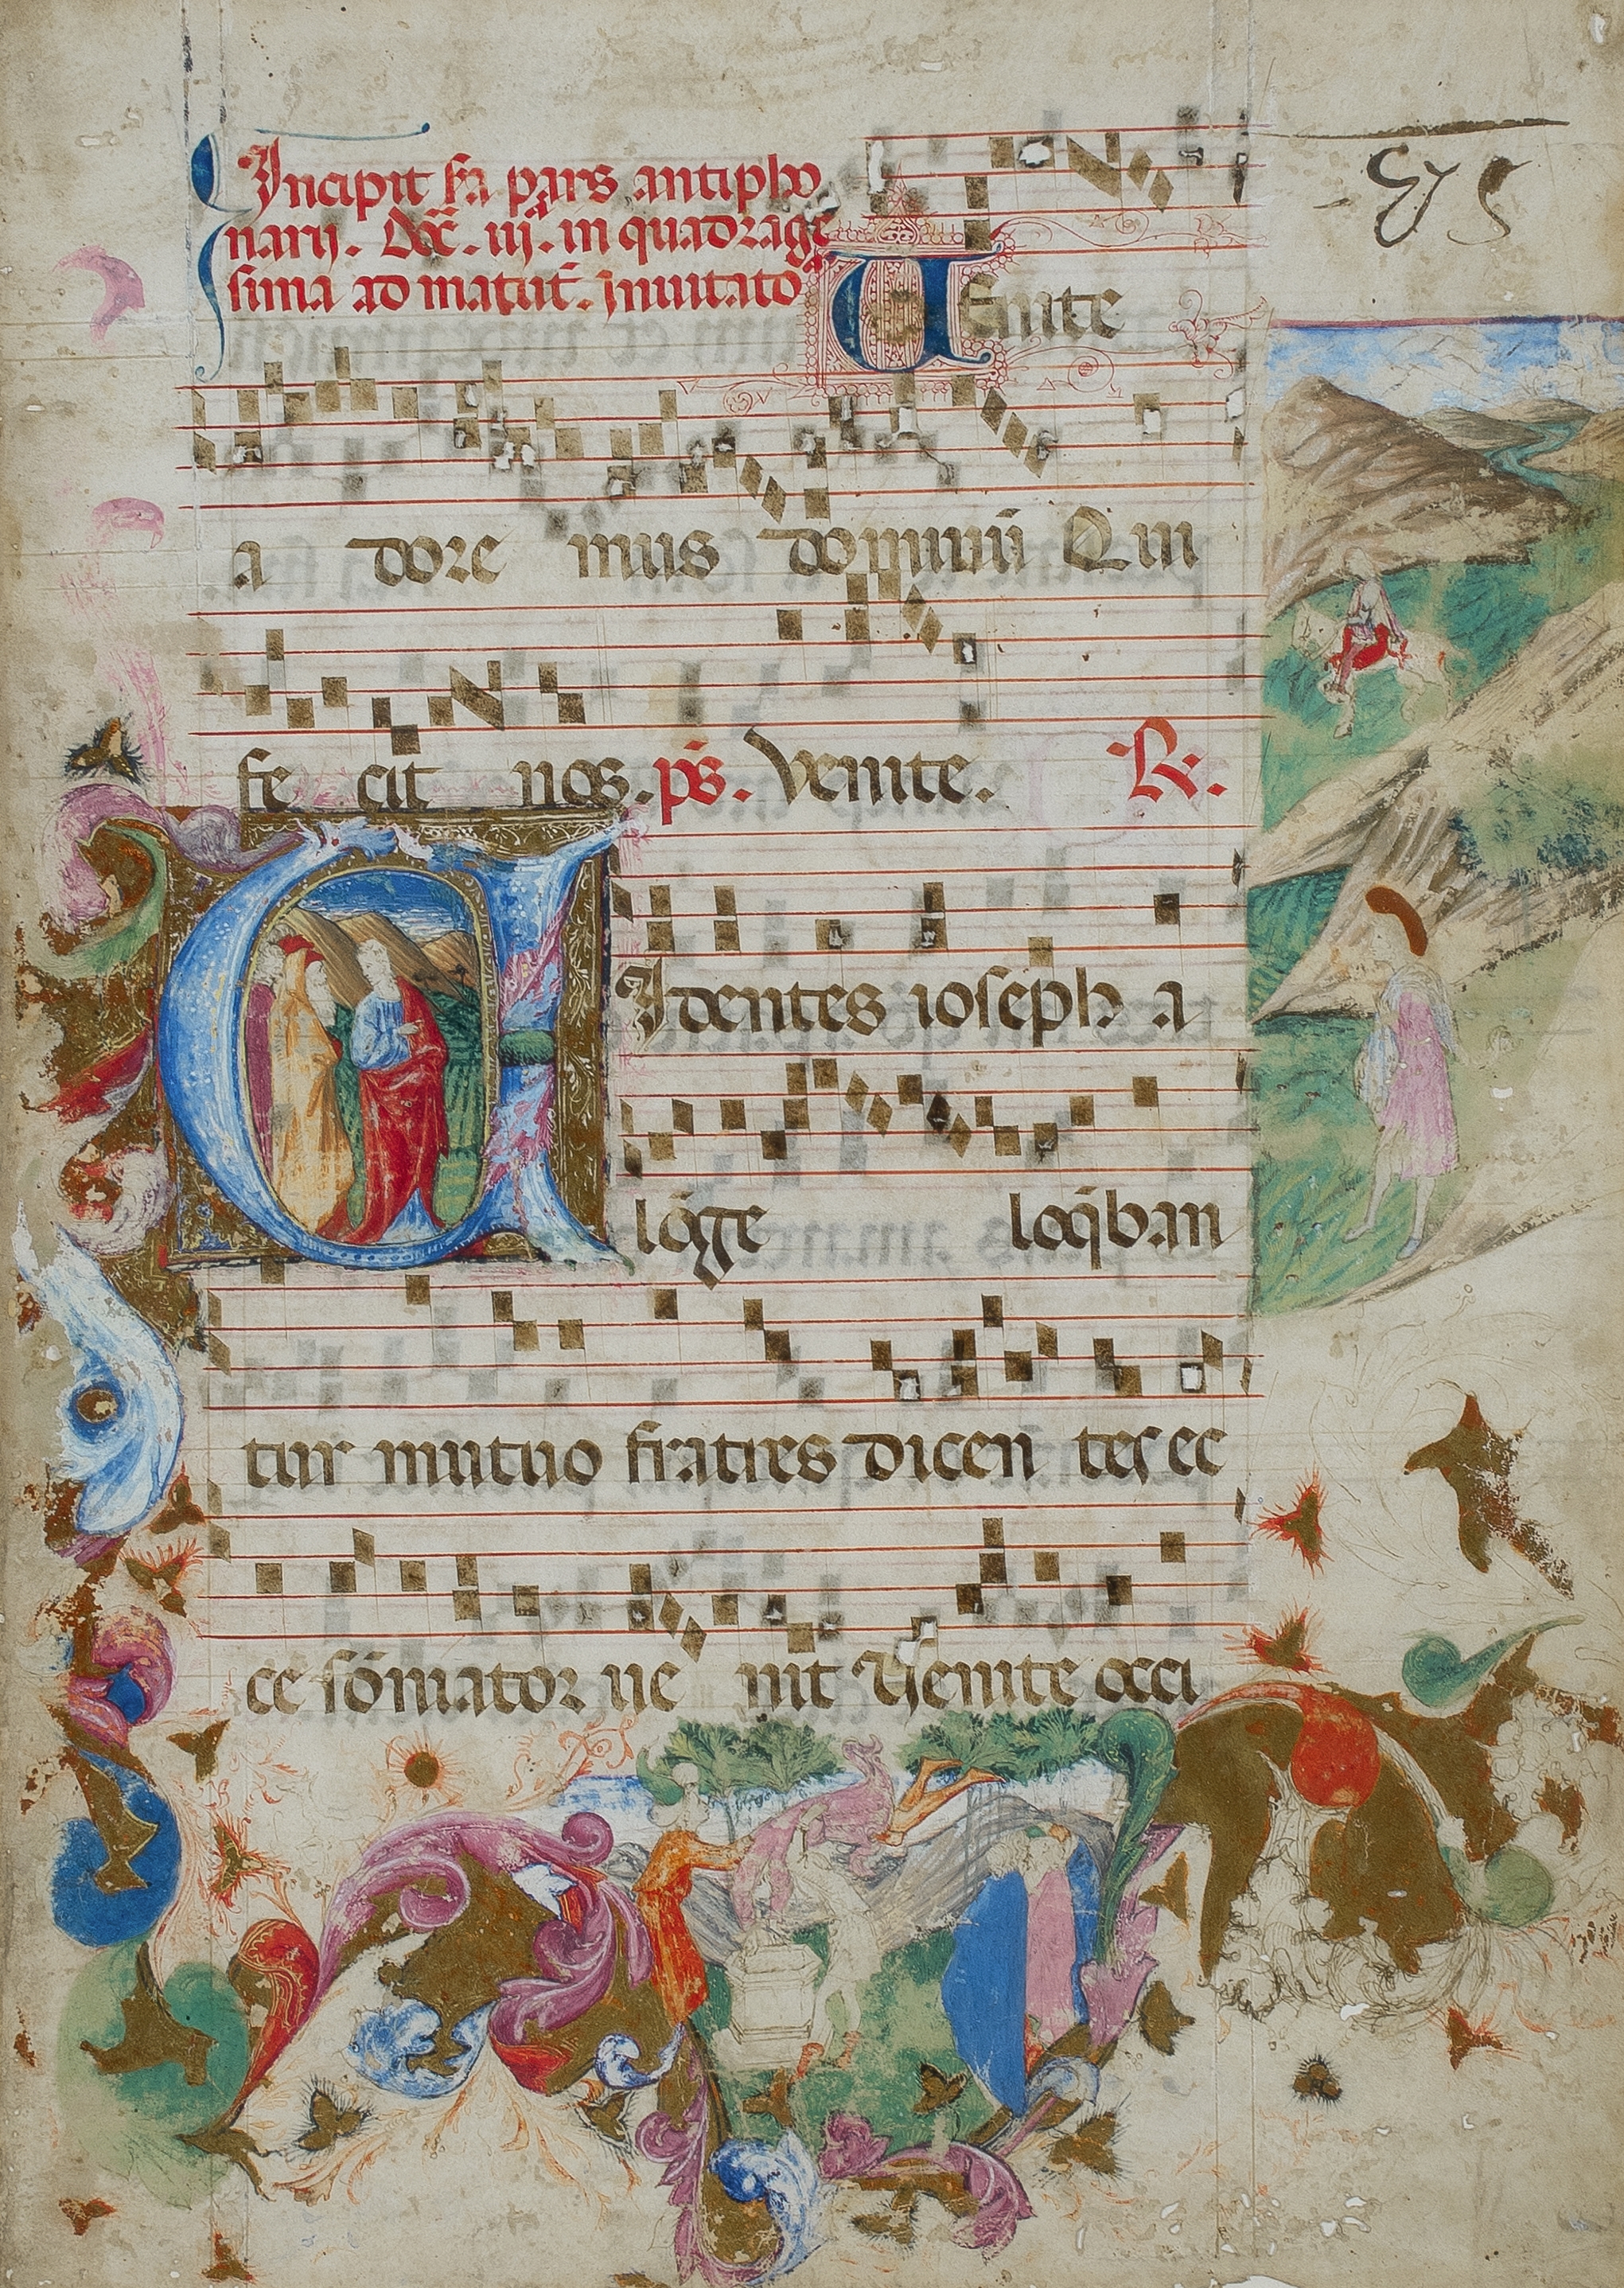 Incipit s̄a pars antipho
narij. Dōc̄. iij. in quadrage
sima ad matut̄. Inuitato
Uenite
a dore mus dominū Qui
fe cit nos. ps̄. Venite. R.
UIdentes ioseph a
lōge loq̄ban
tur mutuo fratres dicen tes ec
ce sōniator ue nit Uenite occi